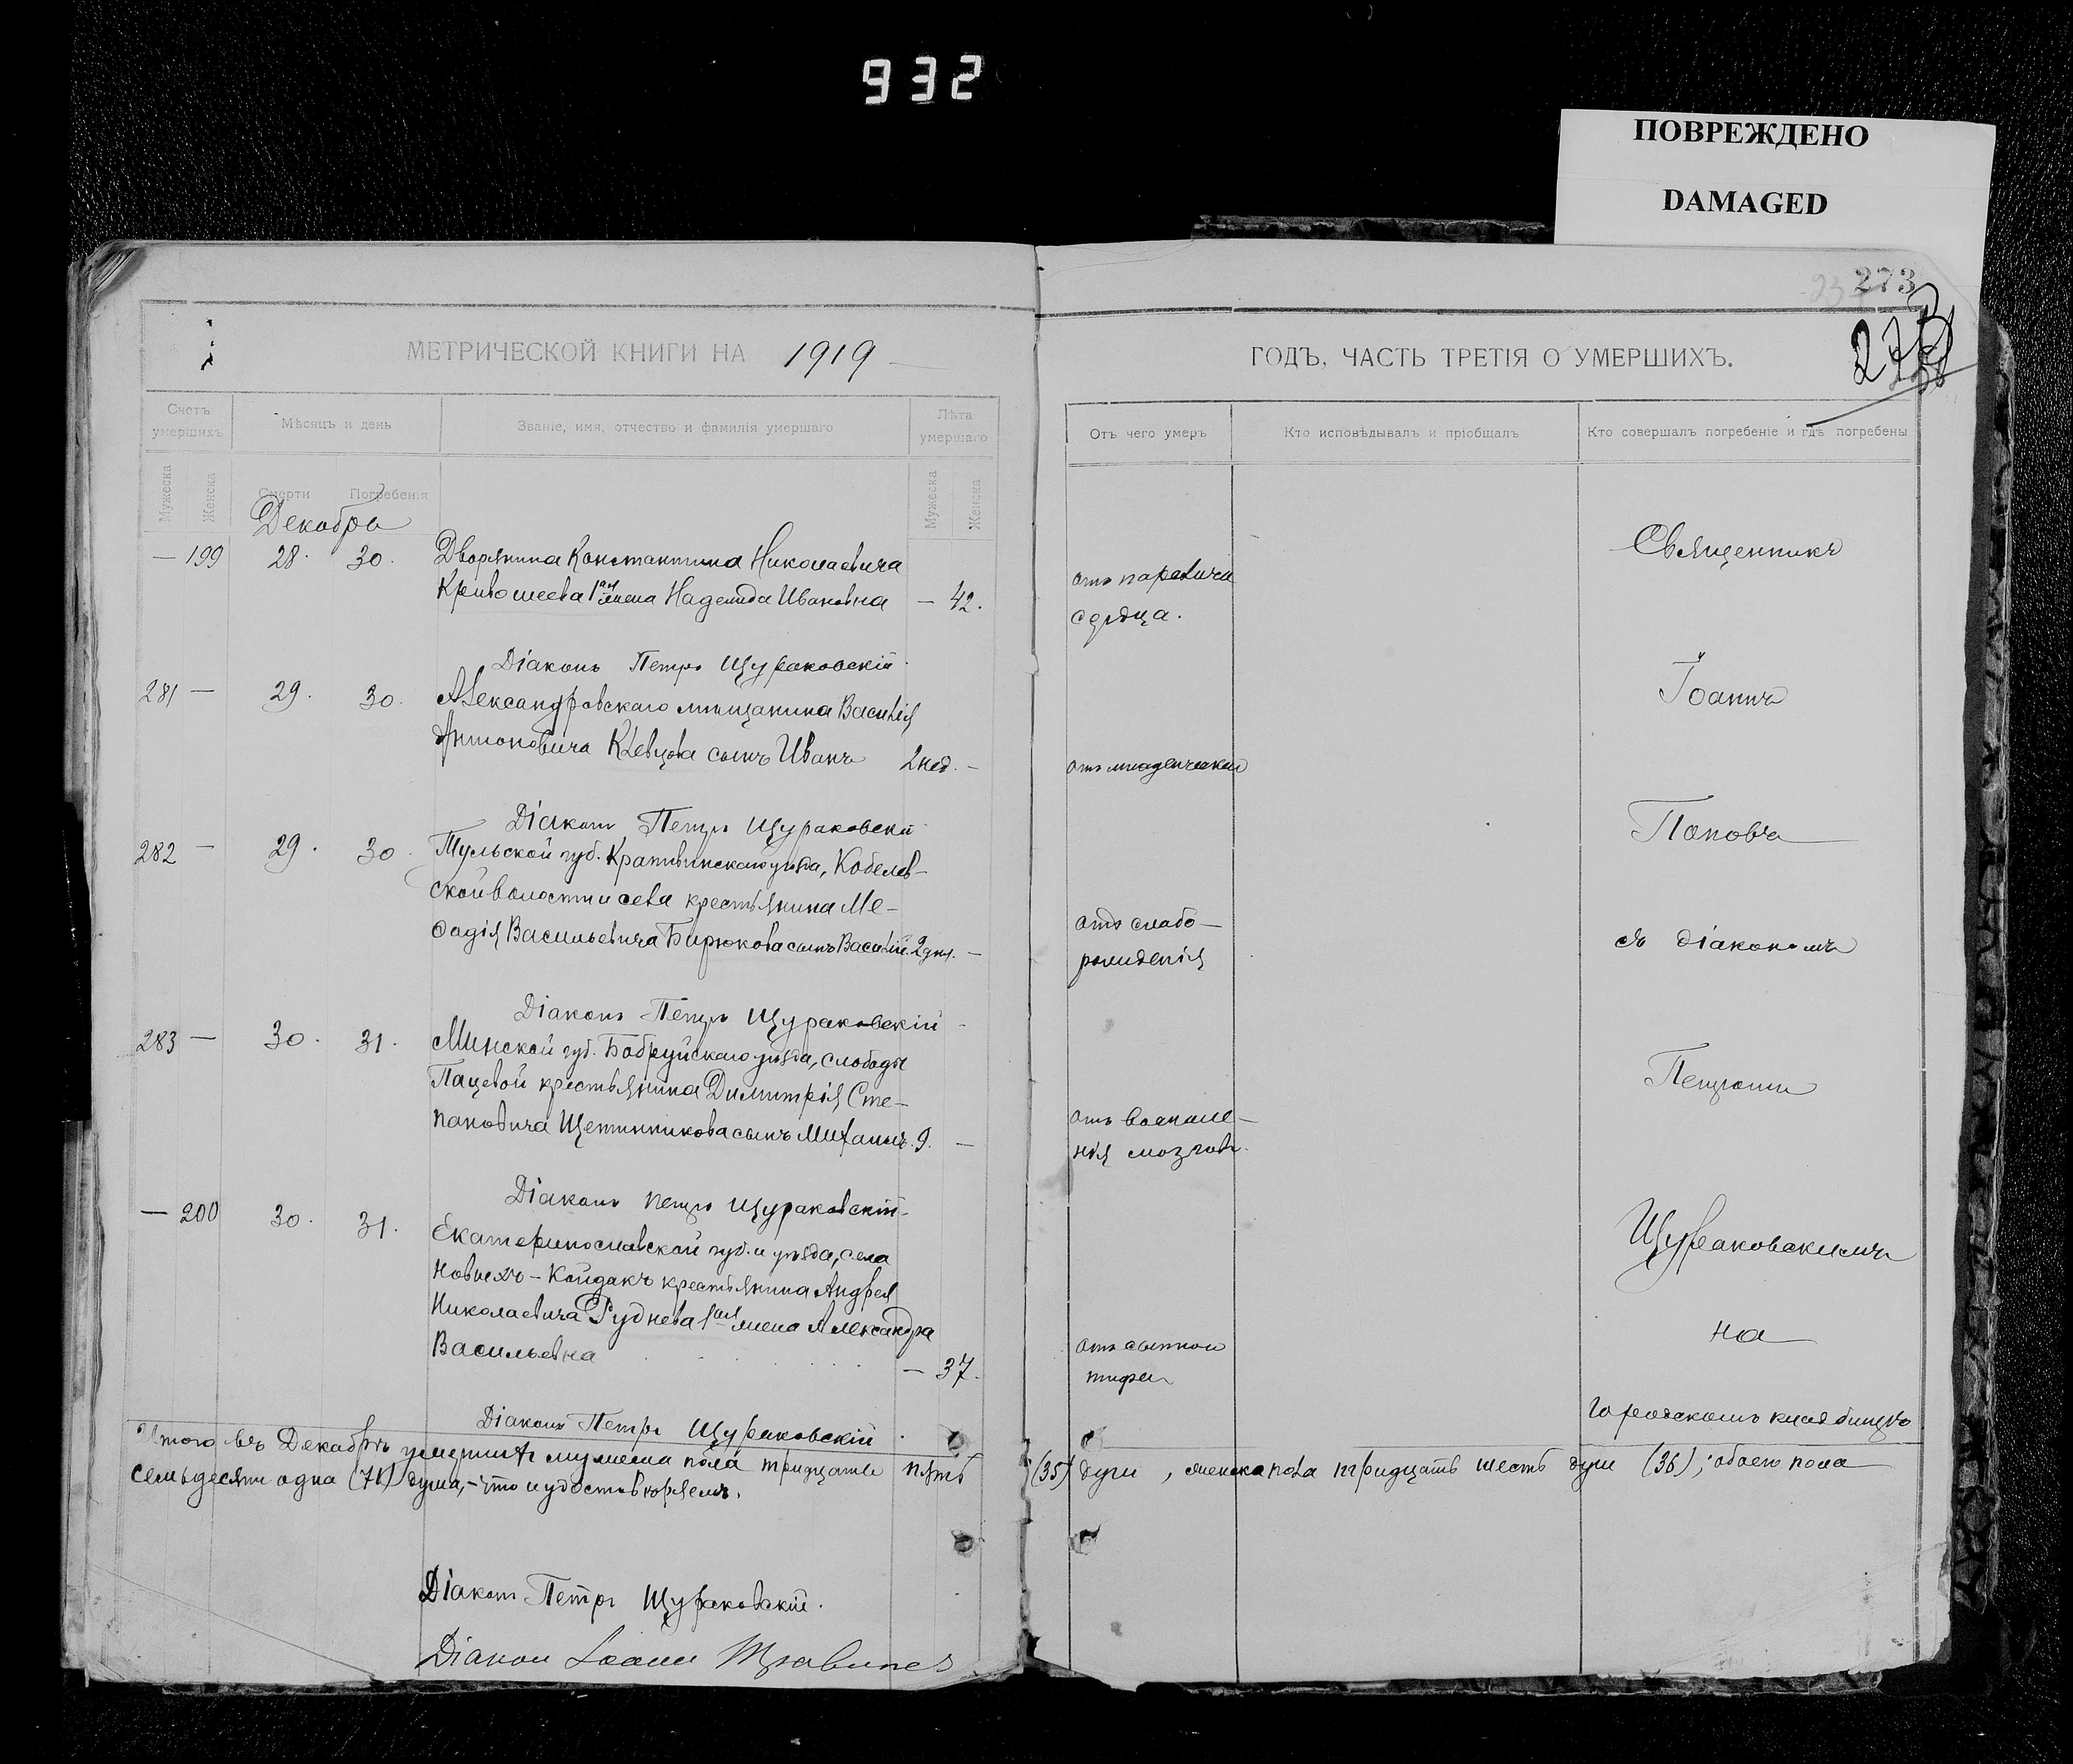 932
ПОВРЕЖДЕНО
DAMAGED
273
273
МЕТРИЧЕСКОЙ КНИГИ НА 1919
ГОДЪ, ЧАСТЬ ТРЕТІЯ О УМЕРШИХЪ.
Счетъ умершихъ
Мѣсяцъ и день
Званіе, имя, отчество и фамилія умершаго
Лѣта умершаго
Отъ чего умеръ
Кто исповѣдывалъ и пріобщалъ
Кто совершалъ погребеніе и гдѣ погребены
Мужеска
Женска
Смерти
Погребенія
Мужеска
Женска
Декабря
— 199 28. 30. Дворянина Константина Николаевича
Кривошеева 1ая жена Надежда Ивановна — 42.
отъ паралича
сердца.
Діаконъ Петръ Щураковскій.
281 — 29. 30. Александровскаго мѣщанина Василія
Антоновича Клевцова сынъ Иванъ 2 нед. —
отъ младенческой
Діаконъ Петръ Щураковскій
282 — 29. 30. Тульской губ. Крапивинскаго уѣзда, Кобелев-
ской волости и села крестьянина Ме-
ѳодія Васильевича Бирюкова сынъ Василій. 2 дня. —
отъ слабо-
рожденія
Діаконъ Петръ Щураковскій
283 — 30. 31. Минской губ. Бобруйскаго уѣзда, слободы
Пацевой крестьянина Димитрія Сте-
пановича Щетинникова сынъ Михаилъ. 9. —
отъ воспале-
нія мозговъ.
Діаконъ Петръ Щураковскій.
— 200 30. 31. Екатеринославской губ. и уѣзда, села
Новыхъ-Койдакъ крестьянина Андрея
Николаевича Руднева 1ая жена Александра
Васильевна — 37.
отъ сыпного
тифа
Діаконъ Петръ Щураковскій.
Священникъ
Іоаннъ
Поповъ
съ діакономъ
Петромъ
Щураковскимъ
на
городскомъ кладбищѣ
Итого въ Декабрѣ умершихъ мужеска пола тридцать пять (35) душъ, женска пола тридцать шесть душъ (36); обоего пола
семьдесятъ одна (71) душа, - что и удостовѣряемъ.
Діаконъ Петръ Щураковскій.
Діаконъ Іоаннъ